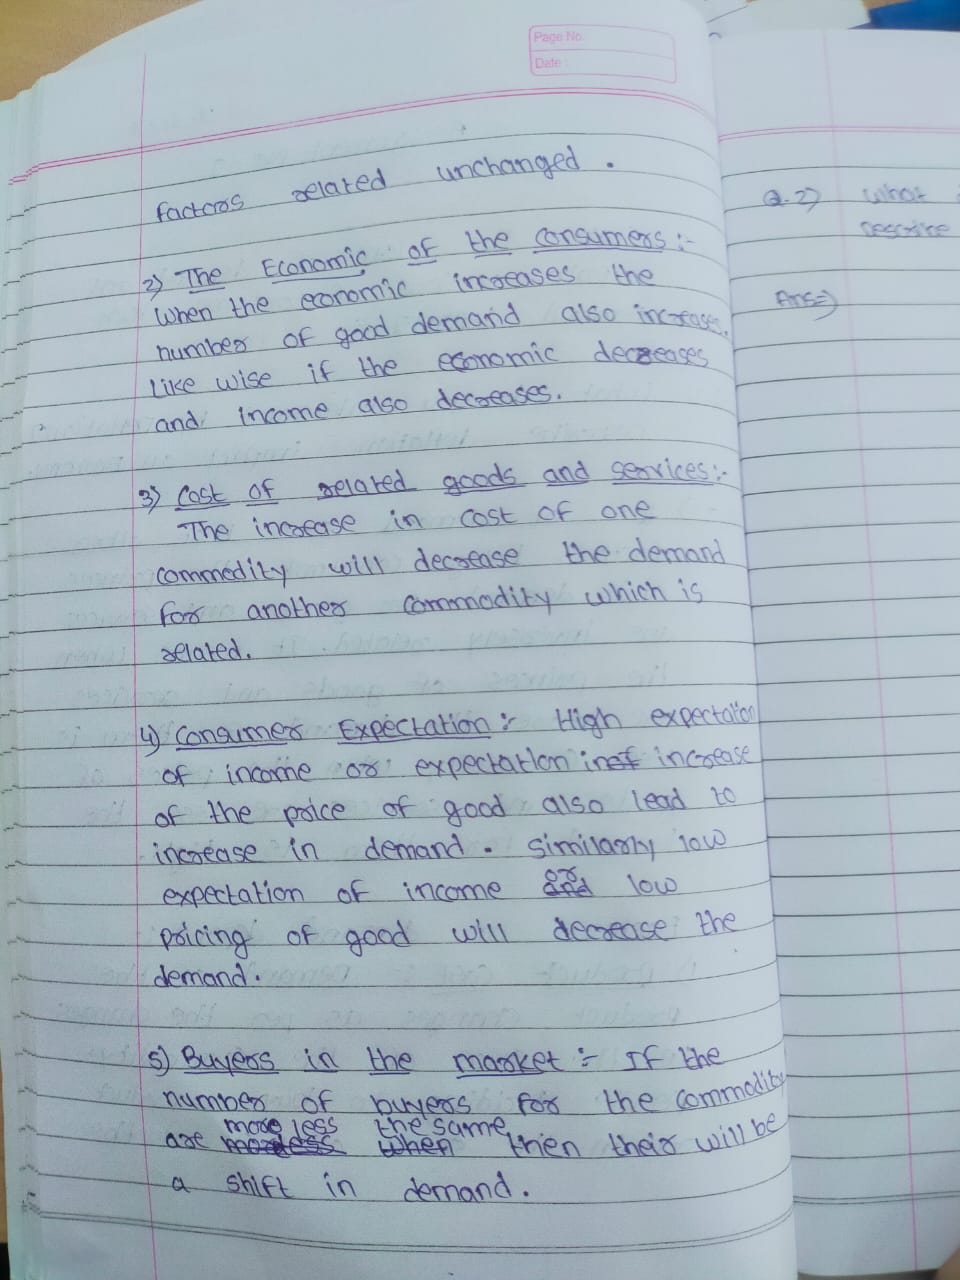 Page No.
Date :
factors related unchanged .
2) The Economic of the consumers :-
when the economic increases the
number of good demand also increases.
Like wise if the economic decreases
and income also decreases.
3) Cost of related goods and services :-
The increase in cost of one
commodity will decrease the demand
for another commodity which is
related.
4) Consumer Expectation :- High expectation
of income or expectation in increase
of the price of good also lead to
increase in demand . similarly low
expectation of income or low
pricing of good will decrease the
demand .
5) Buyers in the market :- If the
number of buyers for the commodity
are more less the same then their will be
a shift in demand .
Q.2) what
Describe
Ans=)